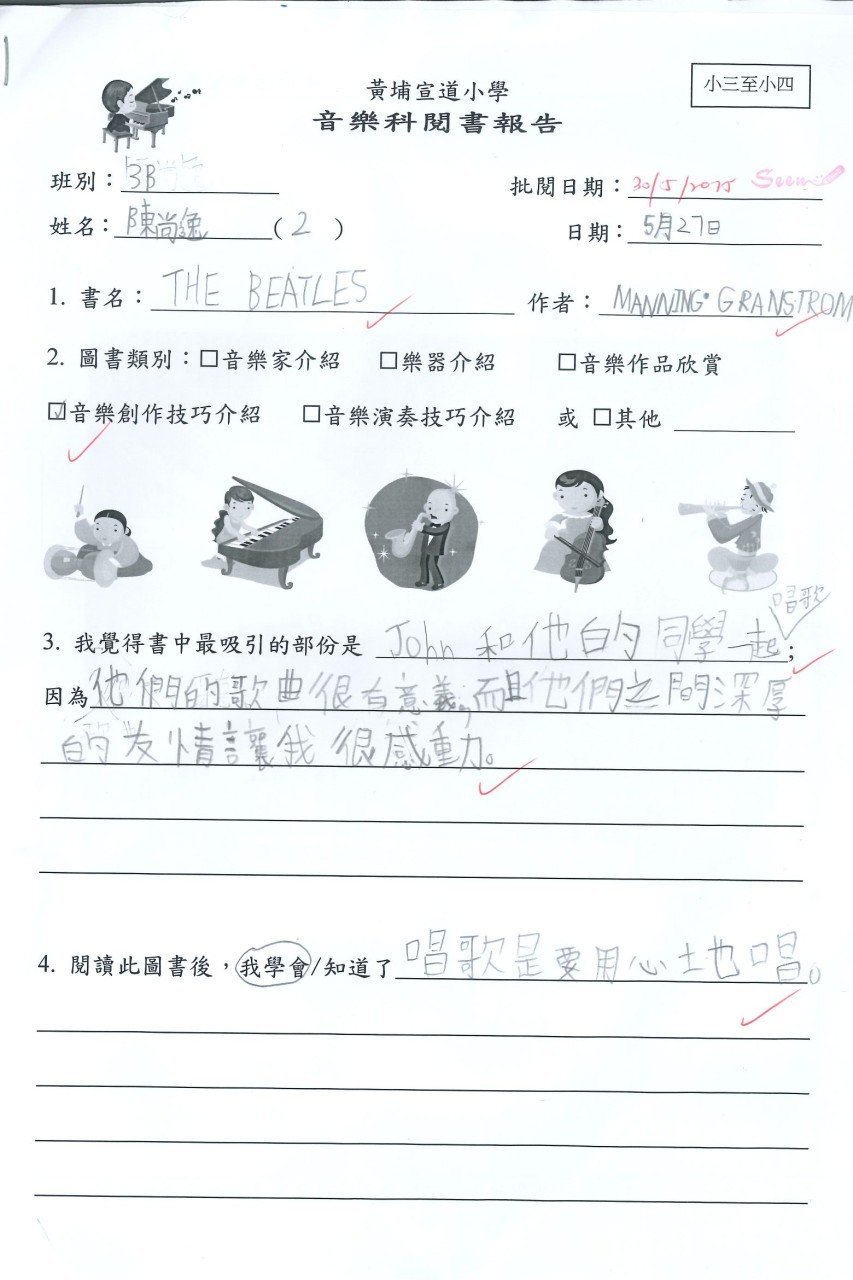 黃埔宣道小學
小三至小四
音樂科閱書報告
班別：3B
批閱日期：30/5/2015
姓名：陳尚逸（2）
日期：5月27日
1. 書名：THE BEATLES 作者：MANNING GRANSTROM
2. 圖書類別：□音樂家介紹 □樂器介紹 □音樂作品欣賞
☑音樂創作技巧介紹 □音樂演奏技巧介紹 或 □其他
唱歌
3. 我覺得書中最吸引的部份是 John 和他的同學一起；
因為他們的歌曲很有意義，而且他們之間深厚
的友情讓我很感動。
4. 閱讀此圖書後，我學會/知道了唱歌是要用心地唱。